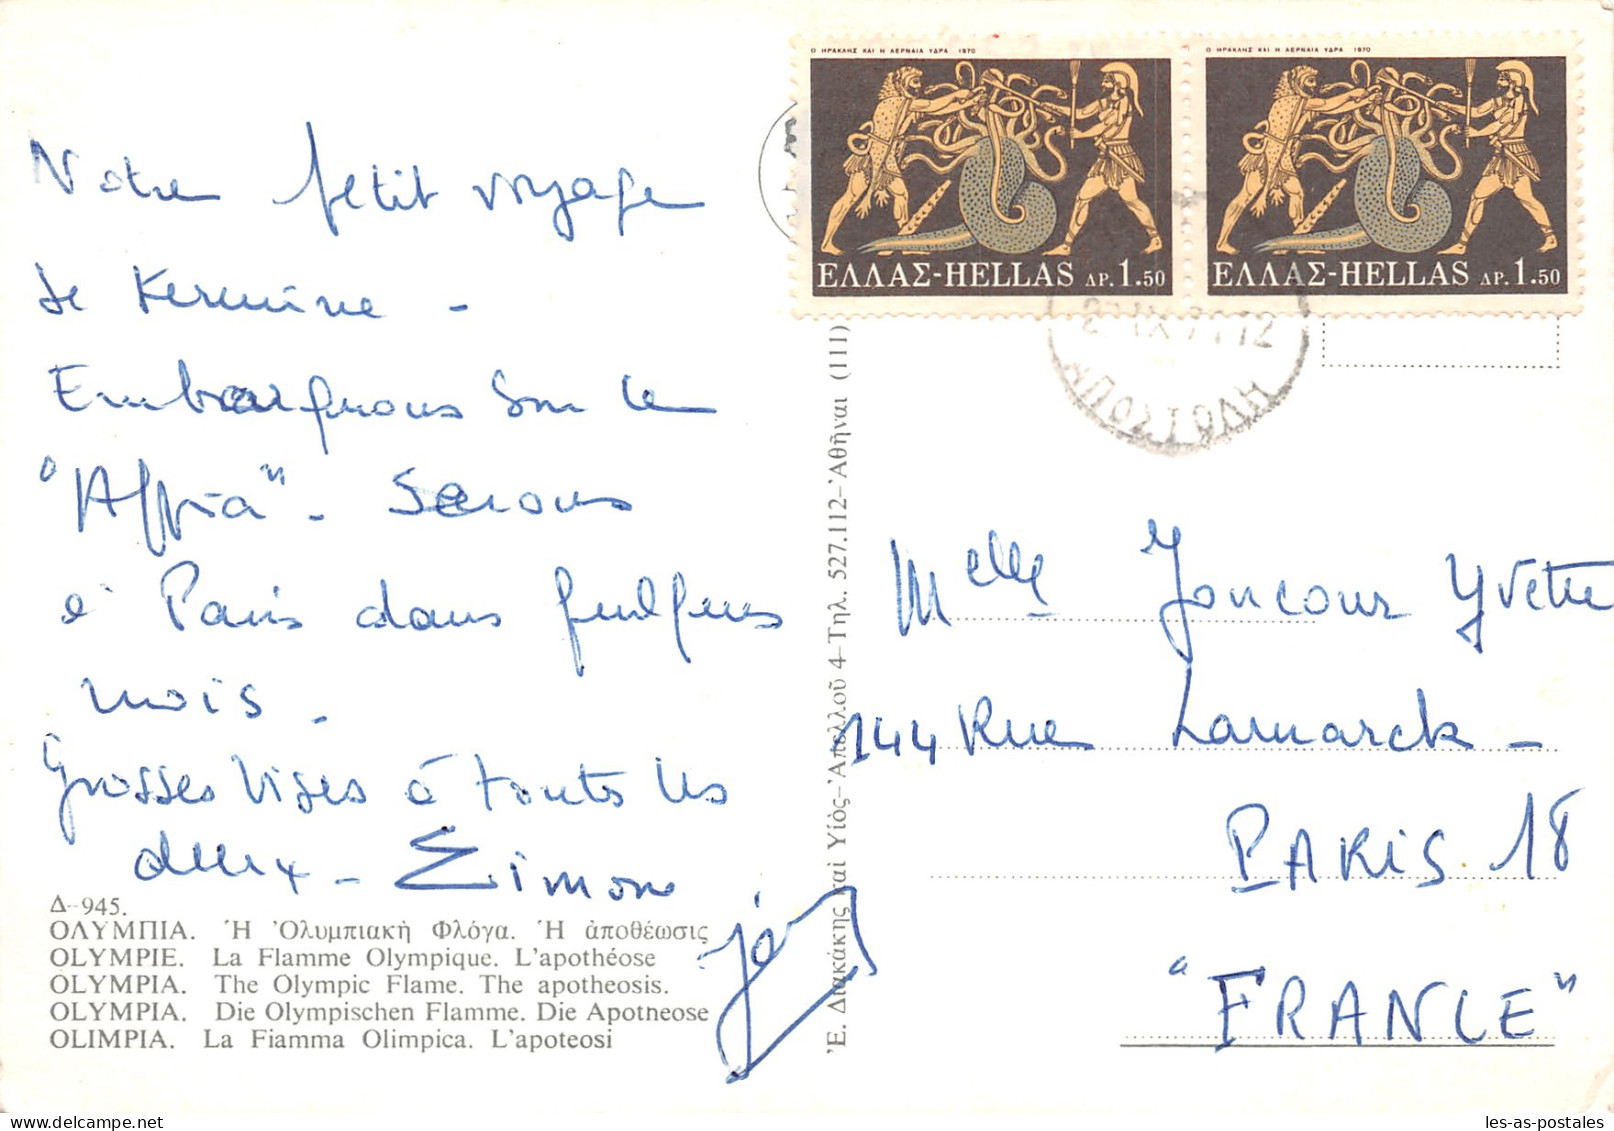 Notre petit voyage
se termine -
Embarquons sur le
"Appia" - Serons
à Paris dans quelques
mois -
Grosses bises à toutes les
deux - Simone
Δ-945.
ΟΛΥΜΠΙΑ. Ἡ Ὀλυμπιακὴ Φλόγα. Ἡ ἀποθέωσις
OLYMPIE. La Flamme Olympique. L'apothéose
OLYMPIA. The Olympic Flame. The apotheosis.
OLYMPIA. Die Olympischen Flamme. Die Apotneose
OLIMPIA. La Fiamma Olimpica. L'apoteosi
Ἐ. Διακάκης καὶ Υἱὸς-Ἀπελλοῦ 4-Τηλ. 527.112-Ἀθῆναι (111)
Ο ΗΡΑΚΛΗΣ ΚΑΙ Η ΛΕΡΝΑΙΑ ΥΔΡΑ 1970
ΕΛΛΑΣ-HELLAS ΔΡ. 1.50
Ο ΗΡΑΚΛΗΣ ΚΑΙ Η ΛΕΡΝΑΙΑ ΥΔΡΑ 1970
ΕΛΛΑΣ-HELLAS ΔΡ. 1.50
ΑΠΟΣΤΟΛΗ
Melle Joncour Yvette
144 Rue Lamarck -
PARIS 18
"FRANCE"
les-as-postales